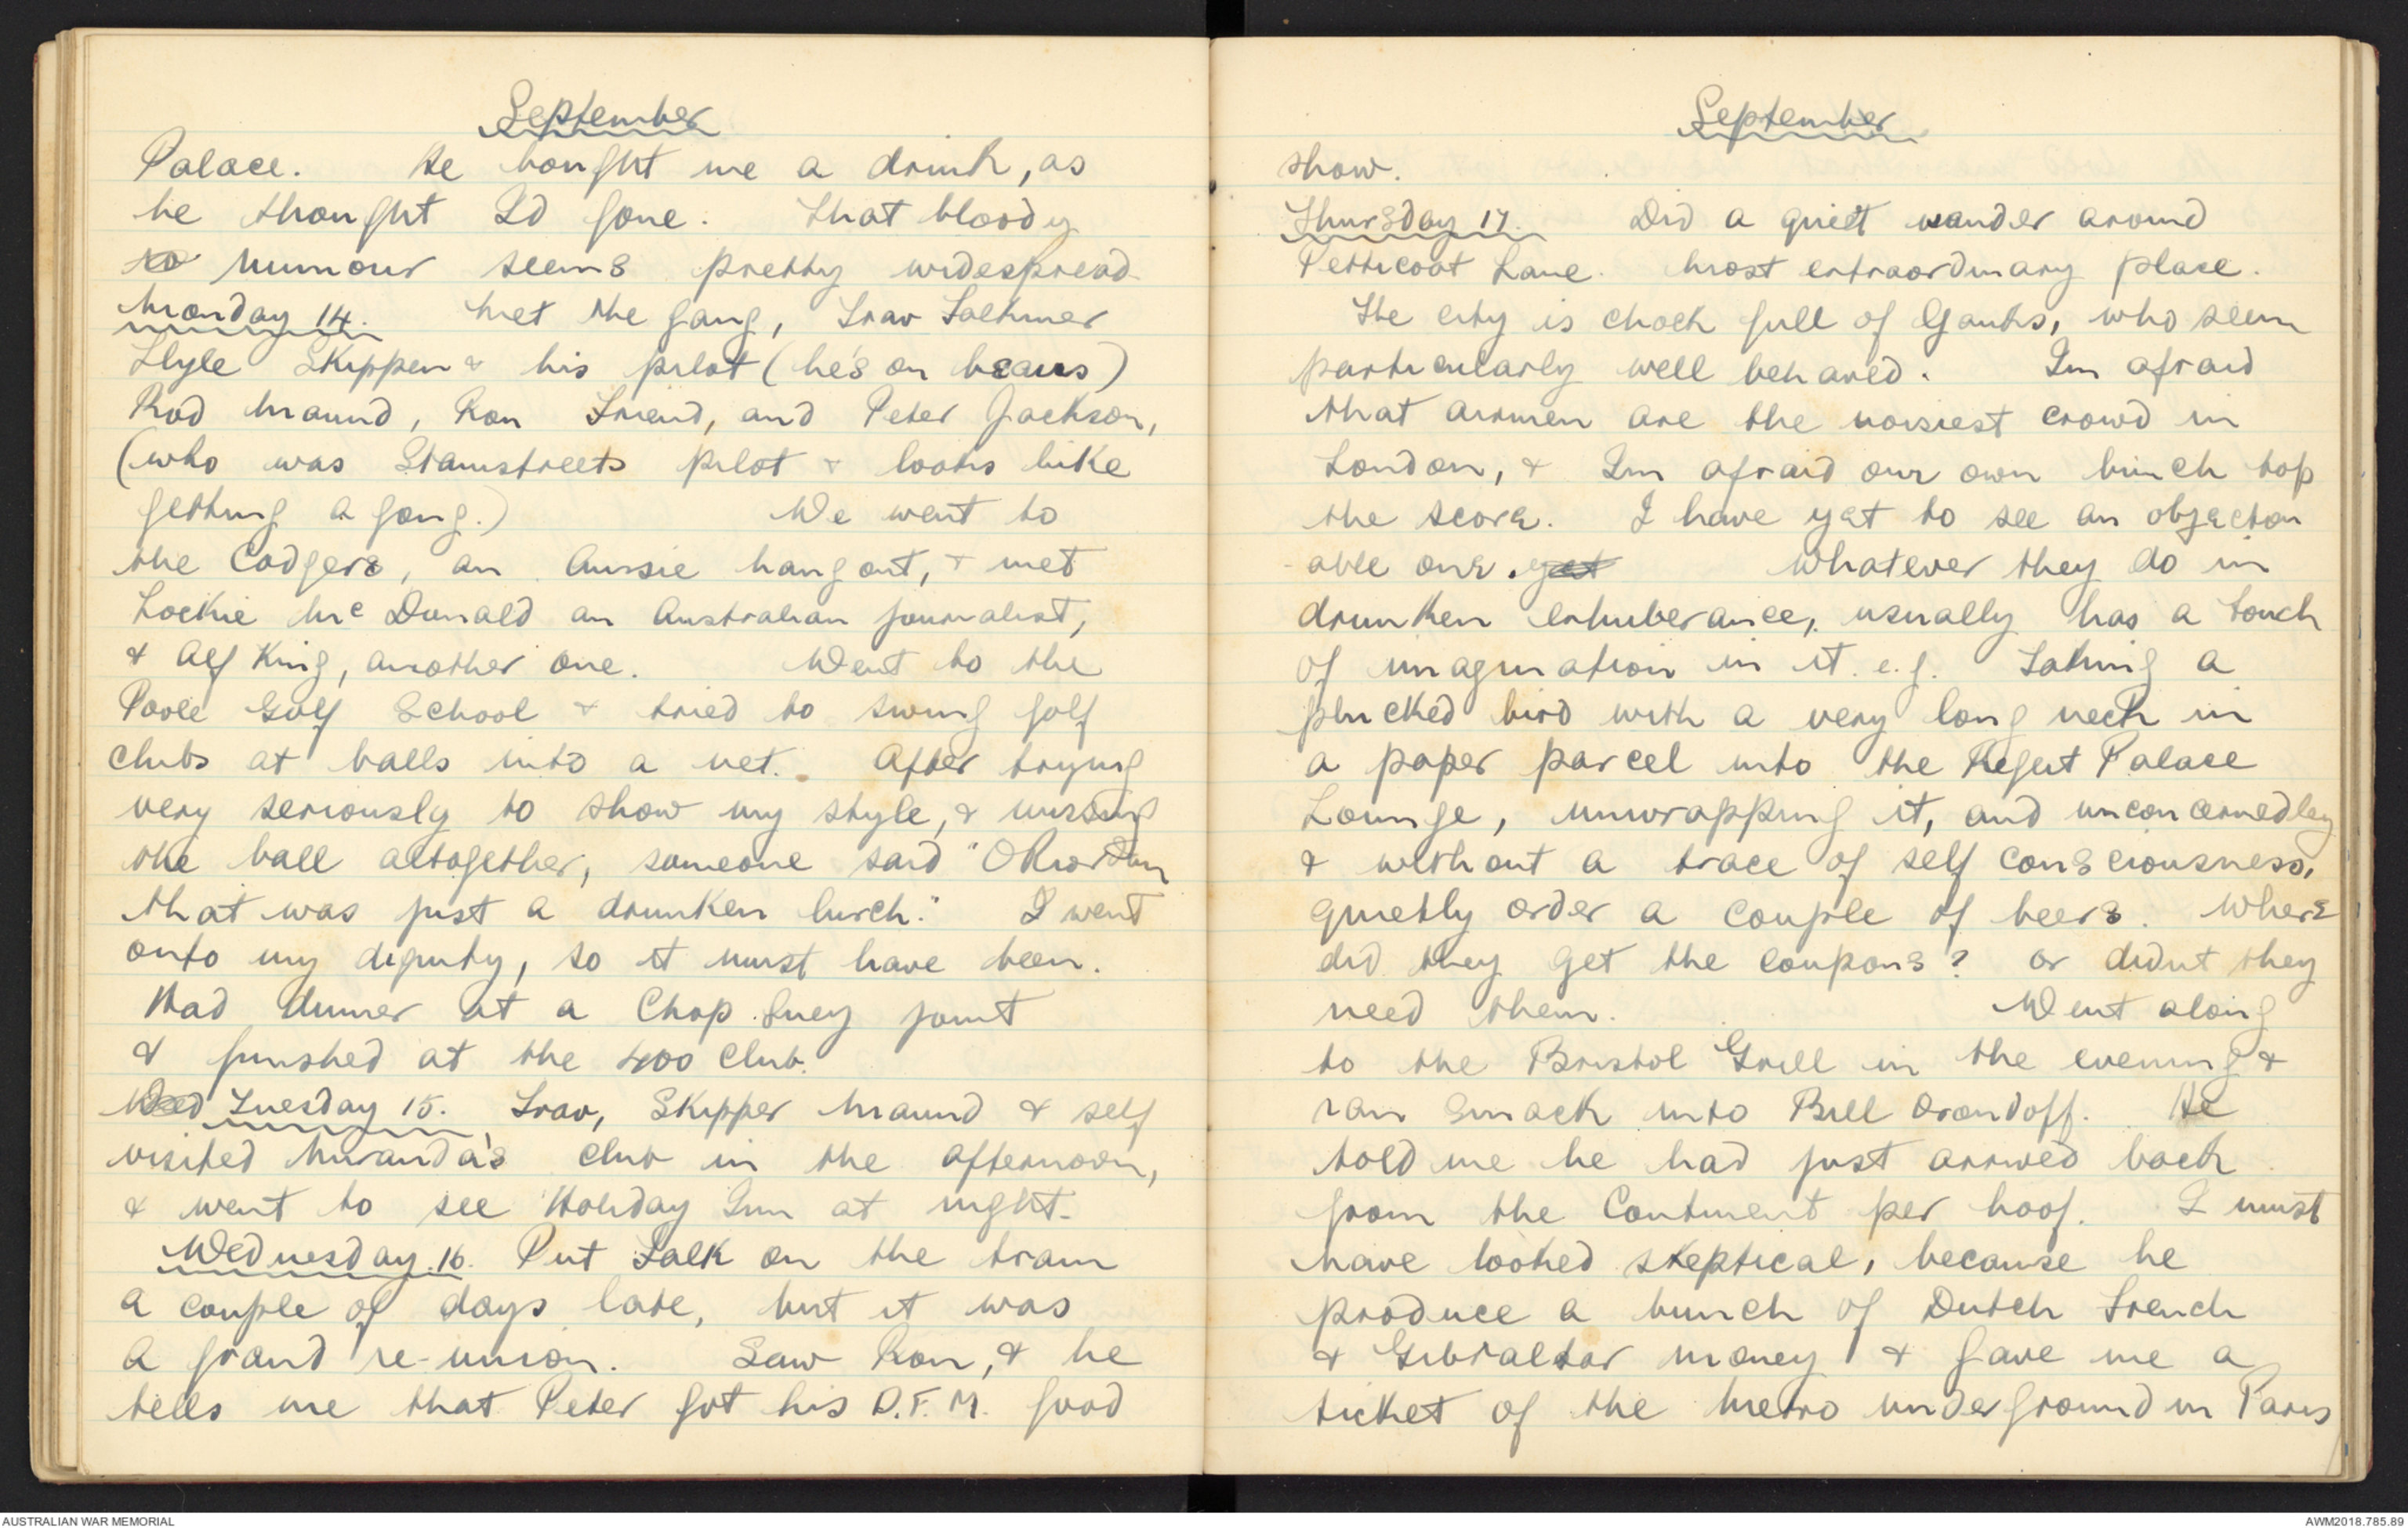 September
Palace. He bought me a drink, as
he thought Id gone. That bloody
ro rumour seems pretty widespread
Monday 14. Met the gang, Trav
Lyle Skipper & his pilot (he's on beaus)
Rod Maund, Ron Friend, and Peter Jackson,
(who was Stanstreets pilot & looks like
getting a gong.) We went to
the Codgers, an Aussie hang out, & met
Lockie Mc Donald an Australian journalist,
& Alf King, another one. Went to the
Poole Golf School & tried to swing golf
clubs at balls into a net. After trying
very seriously to show my style, & missing
the ball altogether, someone said "O Riordan
that was just a drunken lurch." I went
onto my dignity, so it must have been.
Had dinner at a Chop Suey joint
& finished at the 400 Club.
Wed Tuesday 15. Trav, Skipper Maund & self
visited Miranda's club in the afternoon,
& went to see Holiday Inn at night.
Wednesday 16. Put Talk on the train
a couple of days late, but it was
a grand re-union. Saw Ron, & he
tells me that Peter got his D.F.M. good
September
show.
Thursday 17. Did a quiet wander around
Petticoat Lane. Most extraordinary place.
The city is chock full of Yanks, who seem
particularly well behaved. Im afraid
that airmen are the noisiest crowd in
London, & Im afraid our own bunch top
the score. I have yet to see an objection
-able one. yet Whatever they do in
drunken exhuberance, usually has a touch
of imagination in it. e.g. Taking a
plucked bird with a very long neck in
a paper parcel into the Regent Palace
Lounge, unwrapping it, and unconcernedley
& without a trace of self consciousness,
quietly order a couple of beers. Where
did they get the coupons? or didnt they
need them. Went along
to the Bristol Grill in the evening &
ran smack into Bill Orondoff. He
told me he had just arrived back
from the Continent per hoof. I must
have looked skeptical, because he
produce a bunch of Dutch French
& Gibraltar money & gave me a
ticket of the Metro underground in Paris
AUSTRALIAN WAR MEMORIAL
AWM2018.785.89